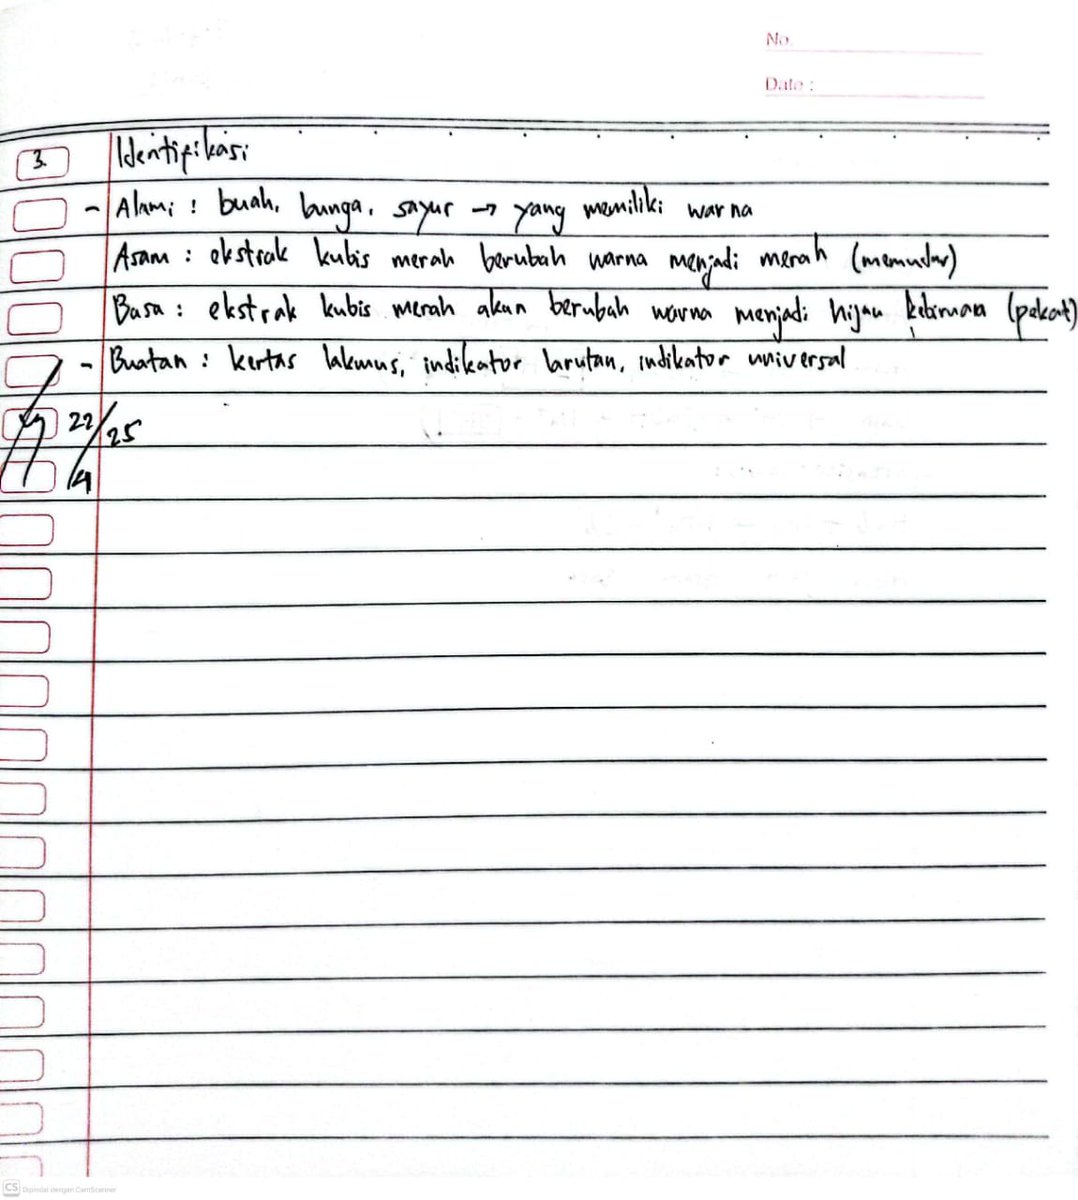 No.
Date :
3. Identifikasi
- Alami : buah, bunga, sayur → yang memiliki warna
Asam : ekstrak kubis merah berubah warna menjadi merah (memudar)
Basa : ekstrak kubis merah akan berubah warna menjadi hijau kebiruan (pekat)
- Buatan : kertas lakmus, indikator larutan, indikator universal
22/25
/4
CS Dipindai dengan CamScanner